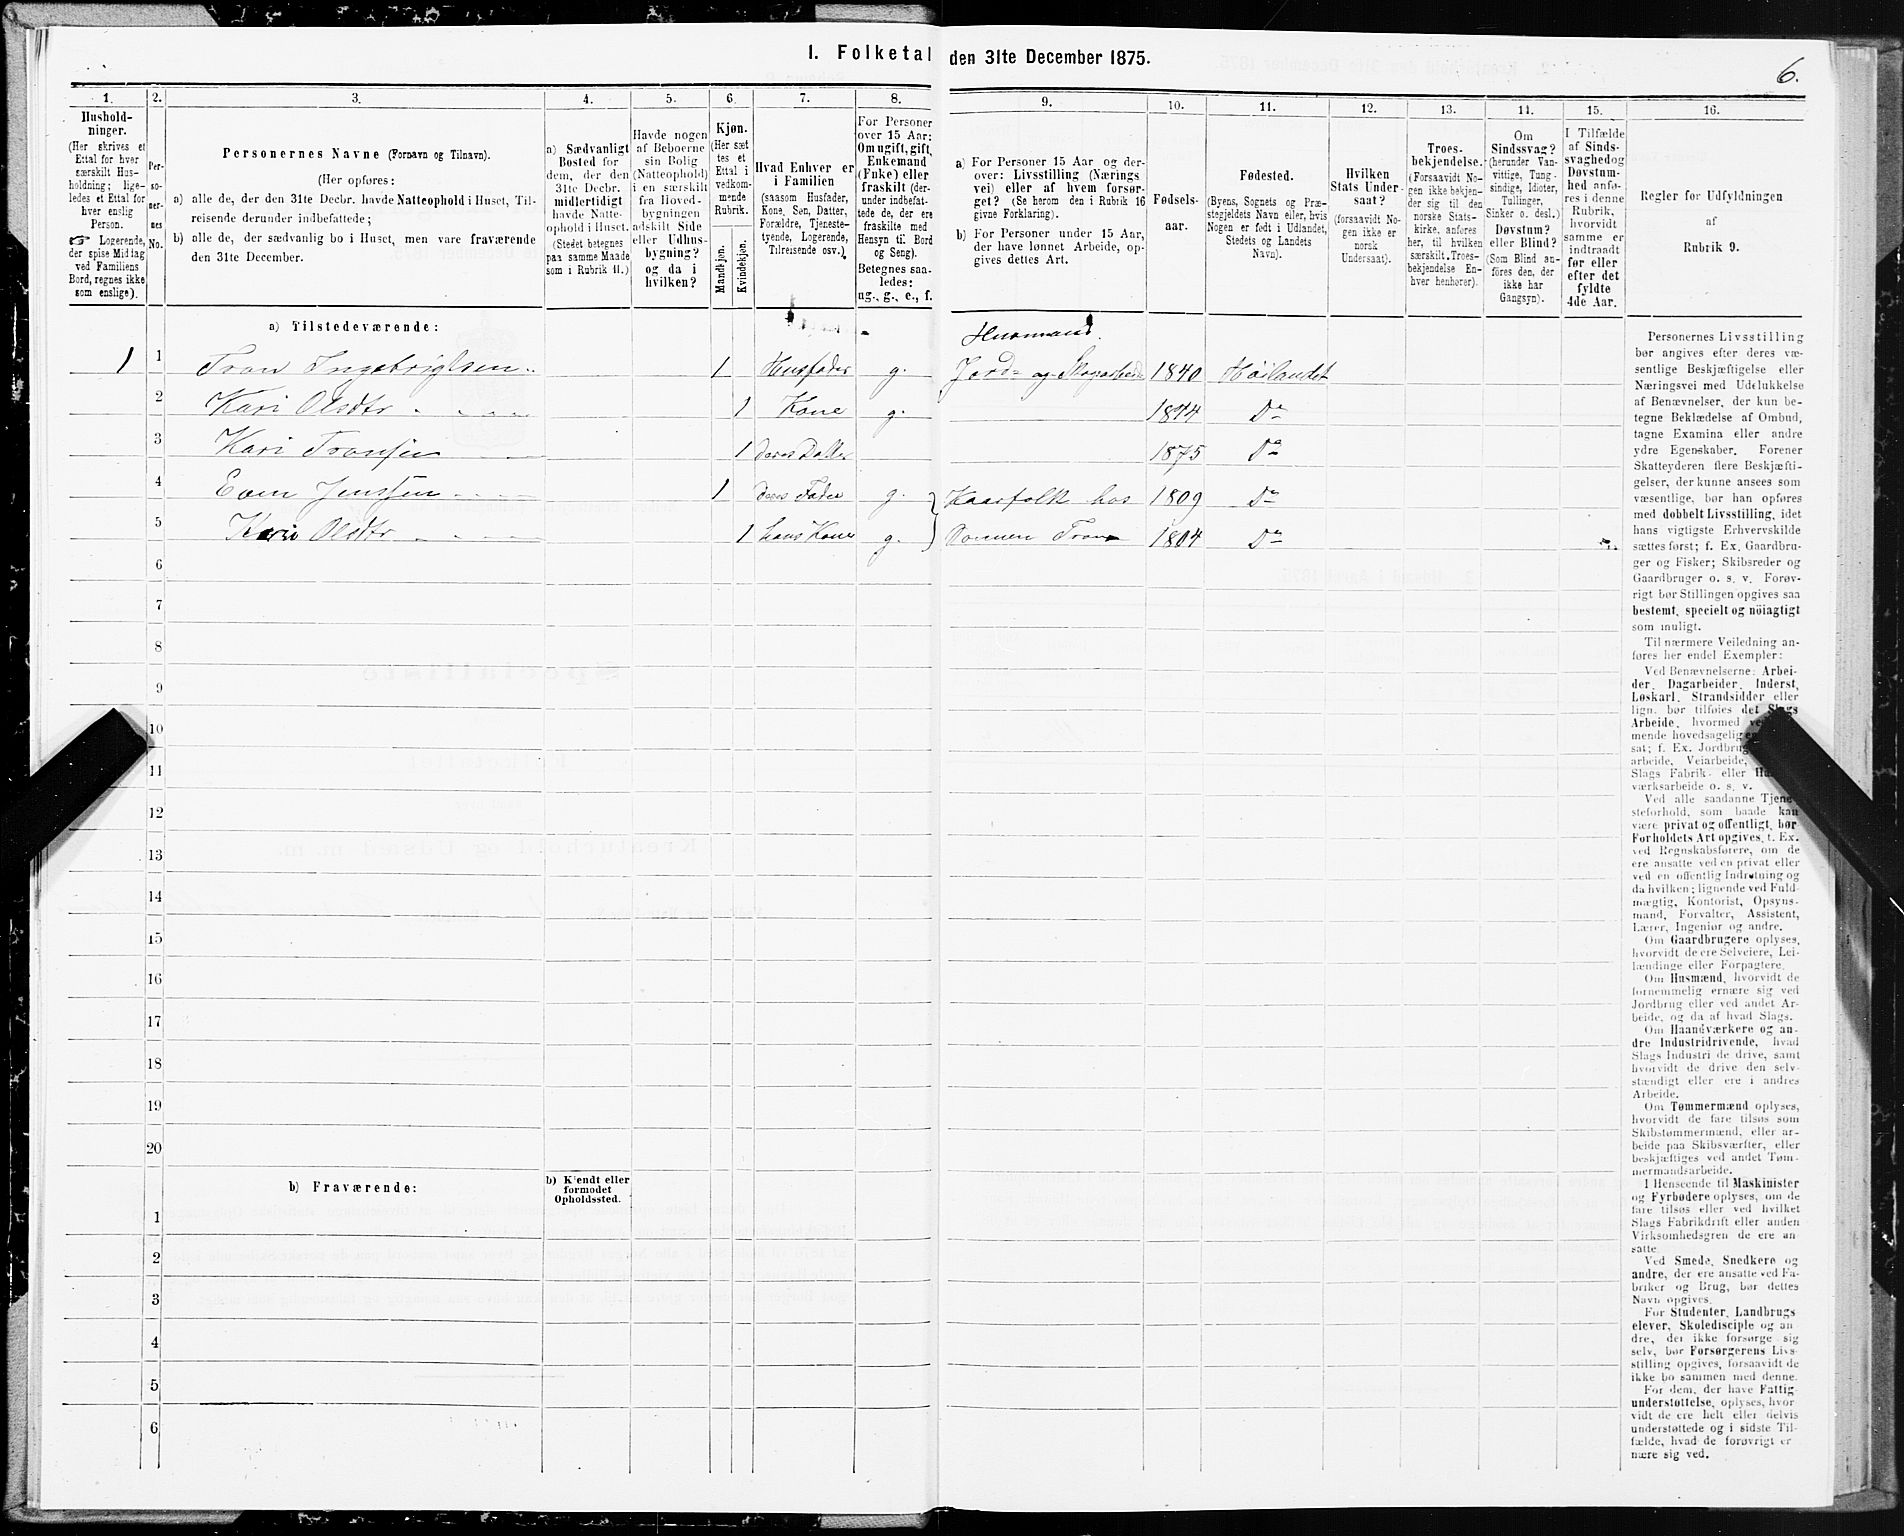 1. Folketal den 31te December 1875.
6.
1. 2. 3. 4. 5. 6. 7. 8. 9. 10. 11. 12. 13. 14. 15. 16.
Hushold-
ninger.
(Her skrives et
Ettal for hver
særskilt Hus-
holdning; lige-
ledes et Ettal for
hver enslig
Person.
☞ Logerende,
der spise Middag
ved Familiens
Bord, regnes ikke
som enslige).
Per-
so-
ner-
nes
No.
Personernes Navne (Fornavn og Tilnavn).
(Her opføres:
a) alle de, der den 31te Decbr. havde Natteophold i Huset, Til-
reisende derunder indbefattede;
b) alle de, der sædvanlig bo i Huset, men vare fraværende
den 31te December.
a) Sædvanligt
Bosted for
dem, der den
31te Decbr.
midlertidigt
havde Natte-
ophold i Huset.
(Stedet betegnes
paa samme Maade
som i Rubrik 11.)
Havde nogen
af Beboerne
sin Bolig
(Natteophold)
i en særskilt
fra Hoved-
bygningen
adskilt Side
eller Udhus-
bygning?
og da i
hvilken?
Kjøn.
(Her sæt
tes et
Ettal i
vedkom-
mende
Rubrik.
Mandkjøn.
Kvindekjøn.
Hvad Enhver er
i Familien
(saasom Husfader,
Kone, Søn, Datter,
Forældre, Tjeneste-
tyende, Logerende,
Tilreisende osv.)
For Personer
over 15 Aar:
Om ugift, gift,
Enkemand
(Enke) eller
fraskilt (der-
under indbefat-
tede de, der ere
fraskilte med
Hensyn til Bord
og Seng).
Betegnes saa-
ledes:
ug., g., e., f.
a) For Personer 15 Aar og der-
over: Livsstilling (Nærings
vei) eller af hvem forsør-
get? (Se herom den i Rubrik 16
givne Forklaring).
b) For Personer under 15 Aar,
der have lønnet Arbeide, op-
gives dettes Art.
Fødsels-
aar.
Fødested.
(Byens, Sognets og Præ-
stegjeldets Navn eller, hvis
Nogen er født i Udlandet,
Stedets og Landets
Navn).
Hvilken
Stats Under-
saat?
(forsaavidt No-
gen ikke er
norsk
Undersaat).
Troes-
bekjendelse.
(Forsaavidt No-
gen ikke bekjen-
der sig til den
norske Stats-
kirke, anføres
her, til hvilken
særskilt. Troes-
bekjendelse En-
hver henhører).
Om
Sindssvag?
(herunder Van-
vittige, Tung-
sindige, Idioter,
Tullinger,
Sinker o. desl.)
Døvstum?
eller Blind?
(Som Blind an-
føres den, der
ikke har
Gangsyn).
I Tilfælde
af Sinds-
svaghed og
Døvstum-
hed anfø-
res i denne
Rubrik,
hvorvidt
samme er
indtraadt
før eller
efter det
fyldte
4de Aar.
Regler for Udfyldningen
af
Rubrik 9.
a) Tilstedeværende:
Husmand.
1 1 Tron Ingebrigtsen 1 Husfader g. Jord- og Skogarbeide 1840 Höilandet
2 Kari Olsdtr 1 Kone g. 1844 Do
3 Kari Tronsen 1 deres Datter 1875 Do
4 Even Jenssen 1 deres Fader g. Kaarfolk hos 1809 Do
5 Kari Olsdtr 1 hans Kone g. Sønnen Tron 1804 Do
6
7
8
9
10
11
12
13
14
15
16
17
18
19
20
b) Fraværende:
b) Kjendt eller
formodet
Opholdssted.
1
2
3
4
5
6
Personernes Livsstilling
bør angives efter deres væ-
sentlige Beskjæftigelse eller
Næringsvei med Udelukkelse
af Benævnelser, der kun be-
tegne Beklædelse af Ombud,
tagne Examina eller andre
ydre Egenskaber. Forener
Skatteyderen flere Beskjæfti-
gelser, der kunne ansees som
væsentlige, bør han opføres
med dobbelt Livsstilling, idet
hans vigtigste Erhvervskilde
sættes først; f. Ex. Gaardbru-
ger og Fisker; Skibsreder og
Gaardbruger o. s. v. Forøv-
rigt bør Stillingen opgives saa
bestemt, specielt og nöiagtigt
som muligt.
Til nærmere Veiledning an-
føres her endel Exempler:
Ved Benævnelserne: Arbei-
der, Dagarbeider, Inderst,
Løskarl, Strandsidder eller
lign. bør tilføies det Slags
Arbeide, hvormed
mende hovedsagelig
sat; f. Ex. Jordbrug
arbeide, Veiarbeide,
Slags Fabrik- eller
værksarbeide o. s. v.
Ved alle saadanne Tjene-
steforhold, som baade kan
være privat og offentligt, bør
Forholdets Art opgives, t. Ex.
ved Regnskabsførere, om de
ere ansatte ved en privat eller
ved en offentlig Indretning og
da hvilken; lignende ved Fuld-
mægtig, Kontorist, Opsyns-
mand, Forvalter, Assistent,
Lærer, Ingeniør og andre.
Om Gaardbrugere oplyses,
hvorvidt de ere Selveiere, Lei-
lændinge eller Forpagtere.
Om Husmænd, hvorvidt de
fornemmelig ernære sig ved
Jordbrug eller ved andet Ar-
beide, og da af hvad Slags.
Om Haandværkere og an-
dre Industridrivende, hvad
Slags Industri de drive, samt
hvorvidt de drive den selv-
stændigt eller ere i andres
Arbeide.
Om Tømmermænd oplyses,
hvorvidt de fare tilsøs som
Skibstømmermænd, eller ar-
beide paa Skibsværfter, eller
beskjæftiges ved andet Tøm-
mermandsarbeide.
I Henseende til Maskinister
og Fyrbødere oplyses, om de
fare tilsøs eller ved hvilket
Slags Fabrikdrift eller anden
Virksomhedsgren de ere an-
satte.
Ved Smede, Snedkere og
andre, der ere ansatte ved Fa-
briker og Brug, bør dettes
Navn opgives.
For Studenter, Landbrugs
elever, Skoledisciple og an
dre, der ikke forsørge sig
selv, bør Forsørgerens Livs-
stilling opgives, forsaavidt de
ikke bo sammen med denne.
For dem, der have Fattig-
understøttelse, oplyses, hvor
vidt de ere helt eller delvis
understøttede og i sidste Til-
fælde, hvad de forøvrigt er
nære sig ved.